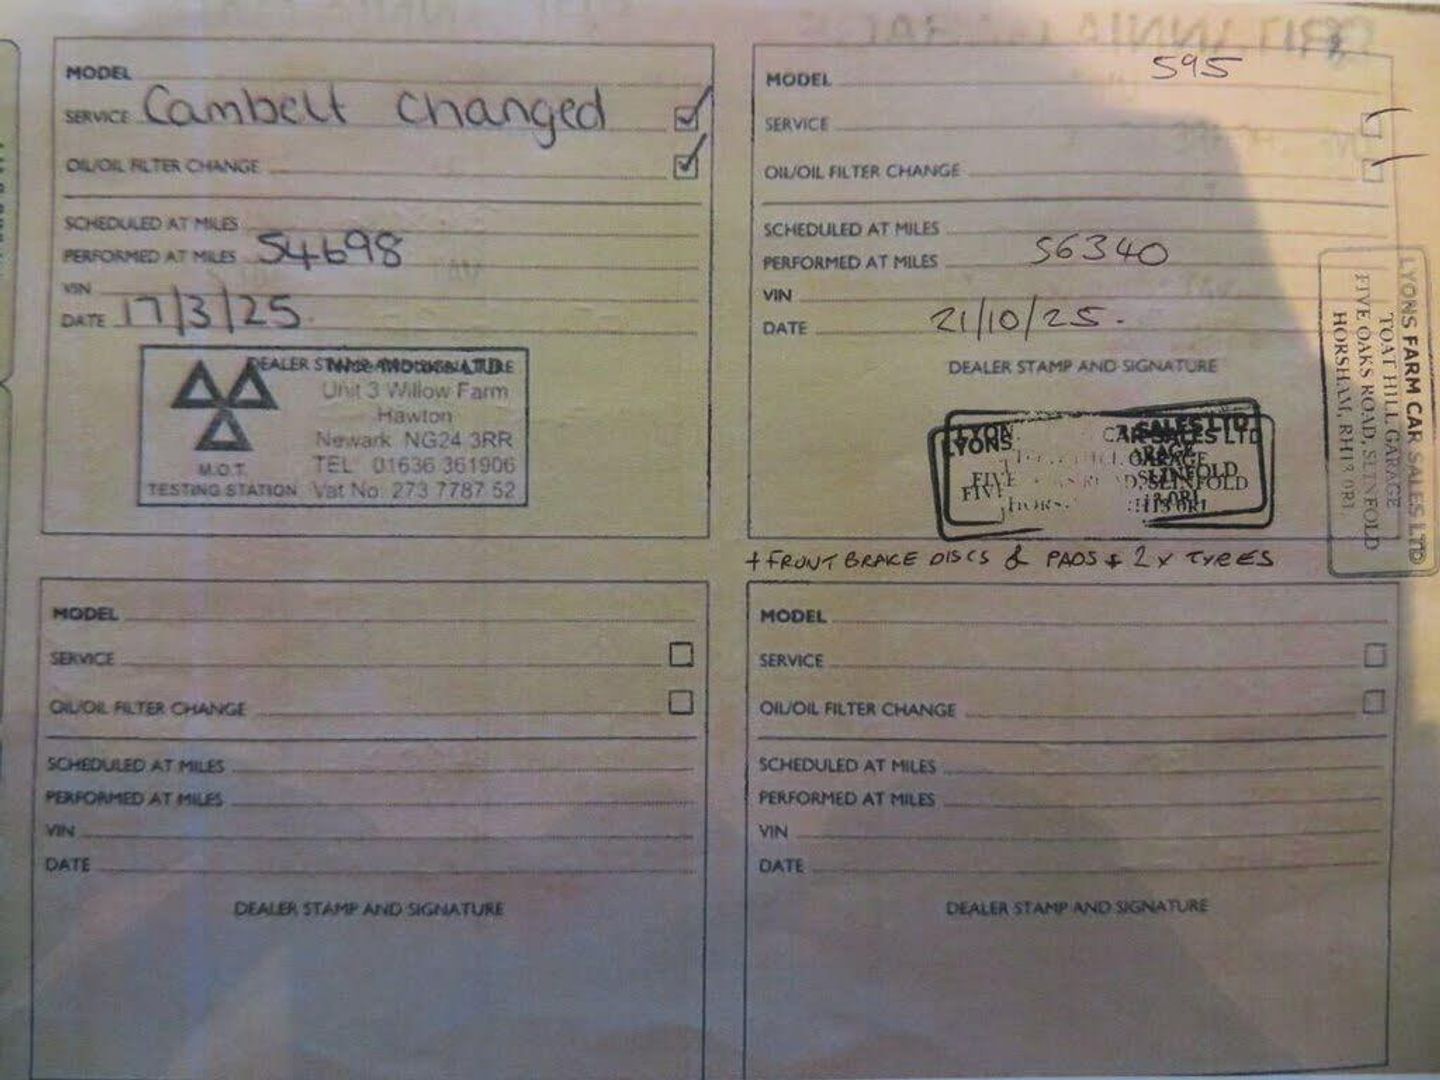 MODEL
SERVICE Cambelt changed
OIL/OIL FILTER CHANGE
SCHEDULED AT MILES
PERFORMED AT MILES 54698
VIN
DATE 17/3/25.
DEALER STAMP AND SIGNATURE
Unit 3 Willow Farm
Hawton
Newark NG24 3RR
TEL 01636 361906
Vat No: 273 7787 52
M.O.T.
TESTING STATION
MODEL 595
SERVICE
OIL/OIL FILTER CHANGE
SCHEDULED AT MILES
PERFORMED AT MILES 56340
VIN
DATE 21/10/25.
DEALER STAMP AND SIGNATURE
LYONS CAR SALES LTD
FIVE SLINFOLD
LYONS FARM CAR SALES LTD
TOAT HILL GARAGE
FIVE OAKS ROAD, SLINFOLD
HORSHAM, RH13 0RL
+ FRONT BRAKE DISCS & PADS + 2 x TYRES
MODEL
SERVICE
OIL/OIL FILTER CHANGE
SCHEDULED AT MILES
PERFORMED AT MILES
VIN
DATE
DEALER STAMP AND SIGNATURE
MODEL
SERVICE
OIL/OIL FILTER CHANGE
SCHEDULED AT MILES
PERFORMED AT MILES
VIN
DATE
DEALER STAMP AND SIGNATURE